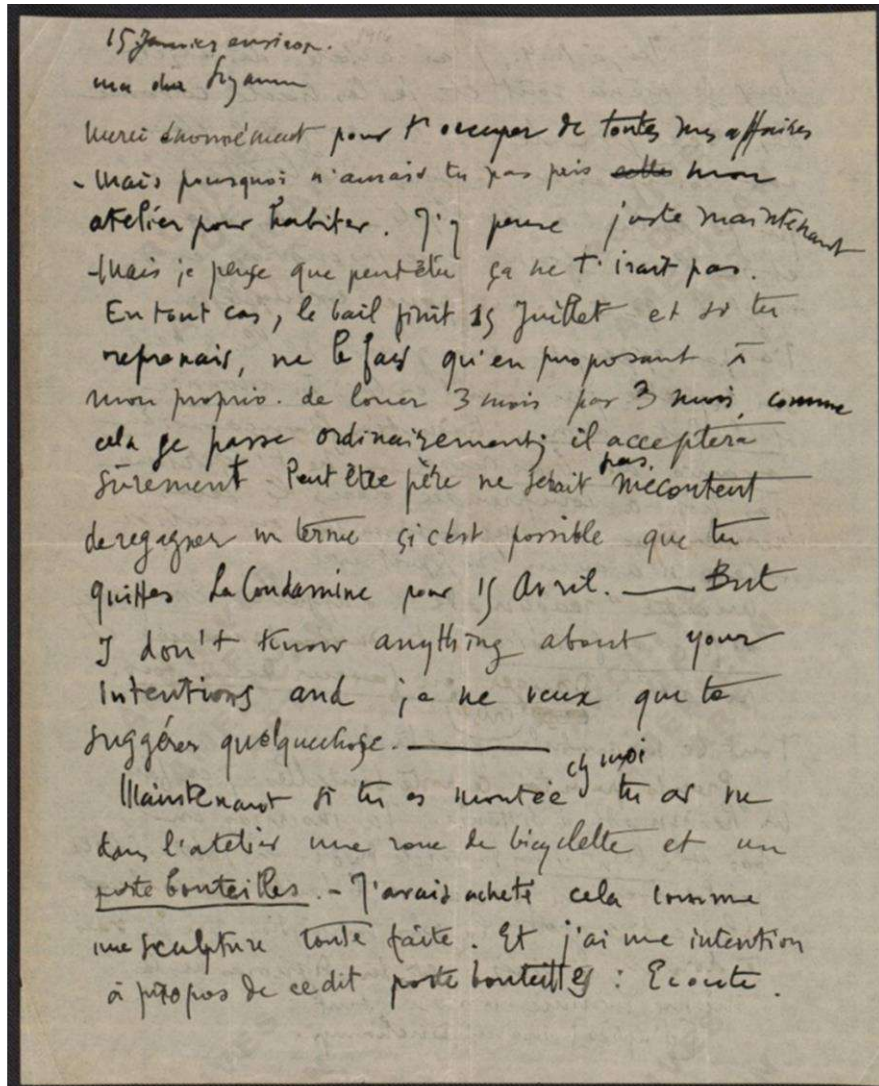 15 Janvier environ.
ma chère Suzanne
Merci énormément pour t'occuper de toutes mes affaires
- Mais pourquoi n'aurais tu pas pris celle mon
atelier pour habiter. J'y pense juste maintenant
- Mais je pense que peutêtre ça ne t'irait pas.
En tout cas, le bail finit 15 Juillet et si tu
reprenais, ne le fais qu'en proposant à
mon proprio. de louer 3 mois par 3 mois, comme
cela se passe ordinairement; il acceptera
sûrement. Peut être père ne serait pas mécontent
de regagner un terme si c'est possible que tu
quittes La Condamine pour 15 Avril. — But
I don't know anything about your
intentions and je ne veux que te
suggérer quelquechose. —
Maintenant si tu es montée chez moi tu as vu
dans l'atelier une roue de bicyclette et un
porte bouteilles. - J'avais acheté cela comme
une sculpture toute faite. Et j'ai une intention
à propos de ce dit porte bouteilles : Ecoute.